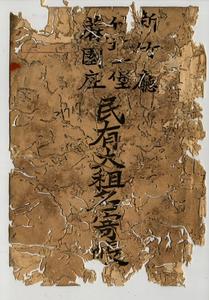 新竹廳
竹北一堡
蔴園庄
民有大租名寄帳